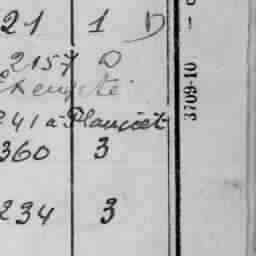 21 1 D
2157 D
Exempté
241 a Plancoët
360 3
234 3
3709-10